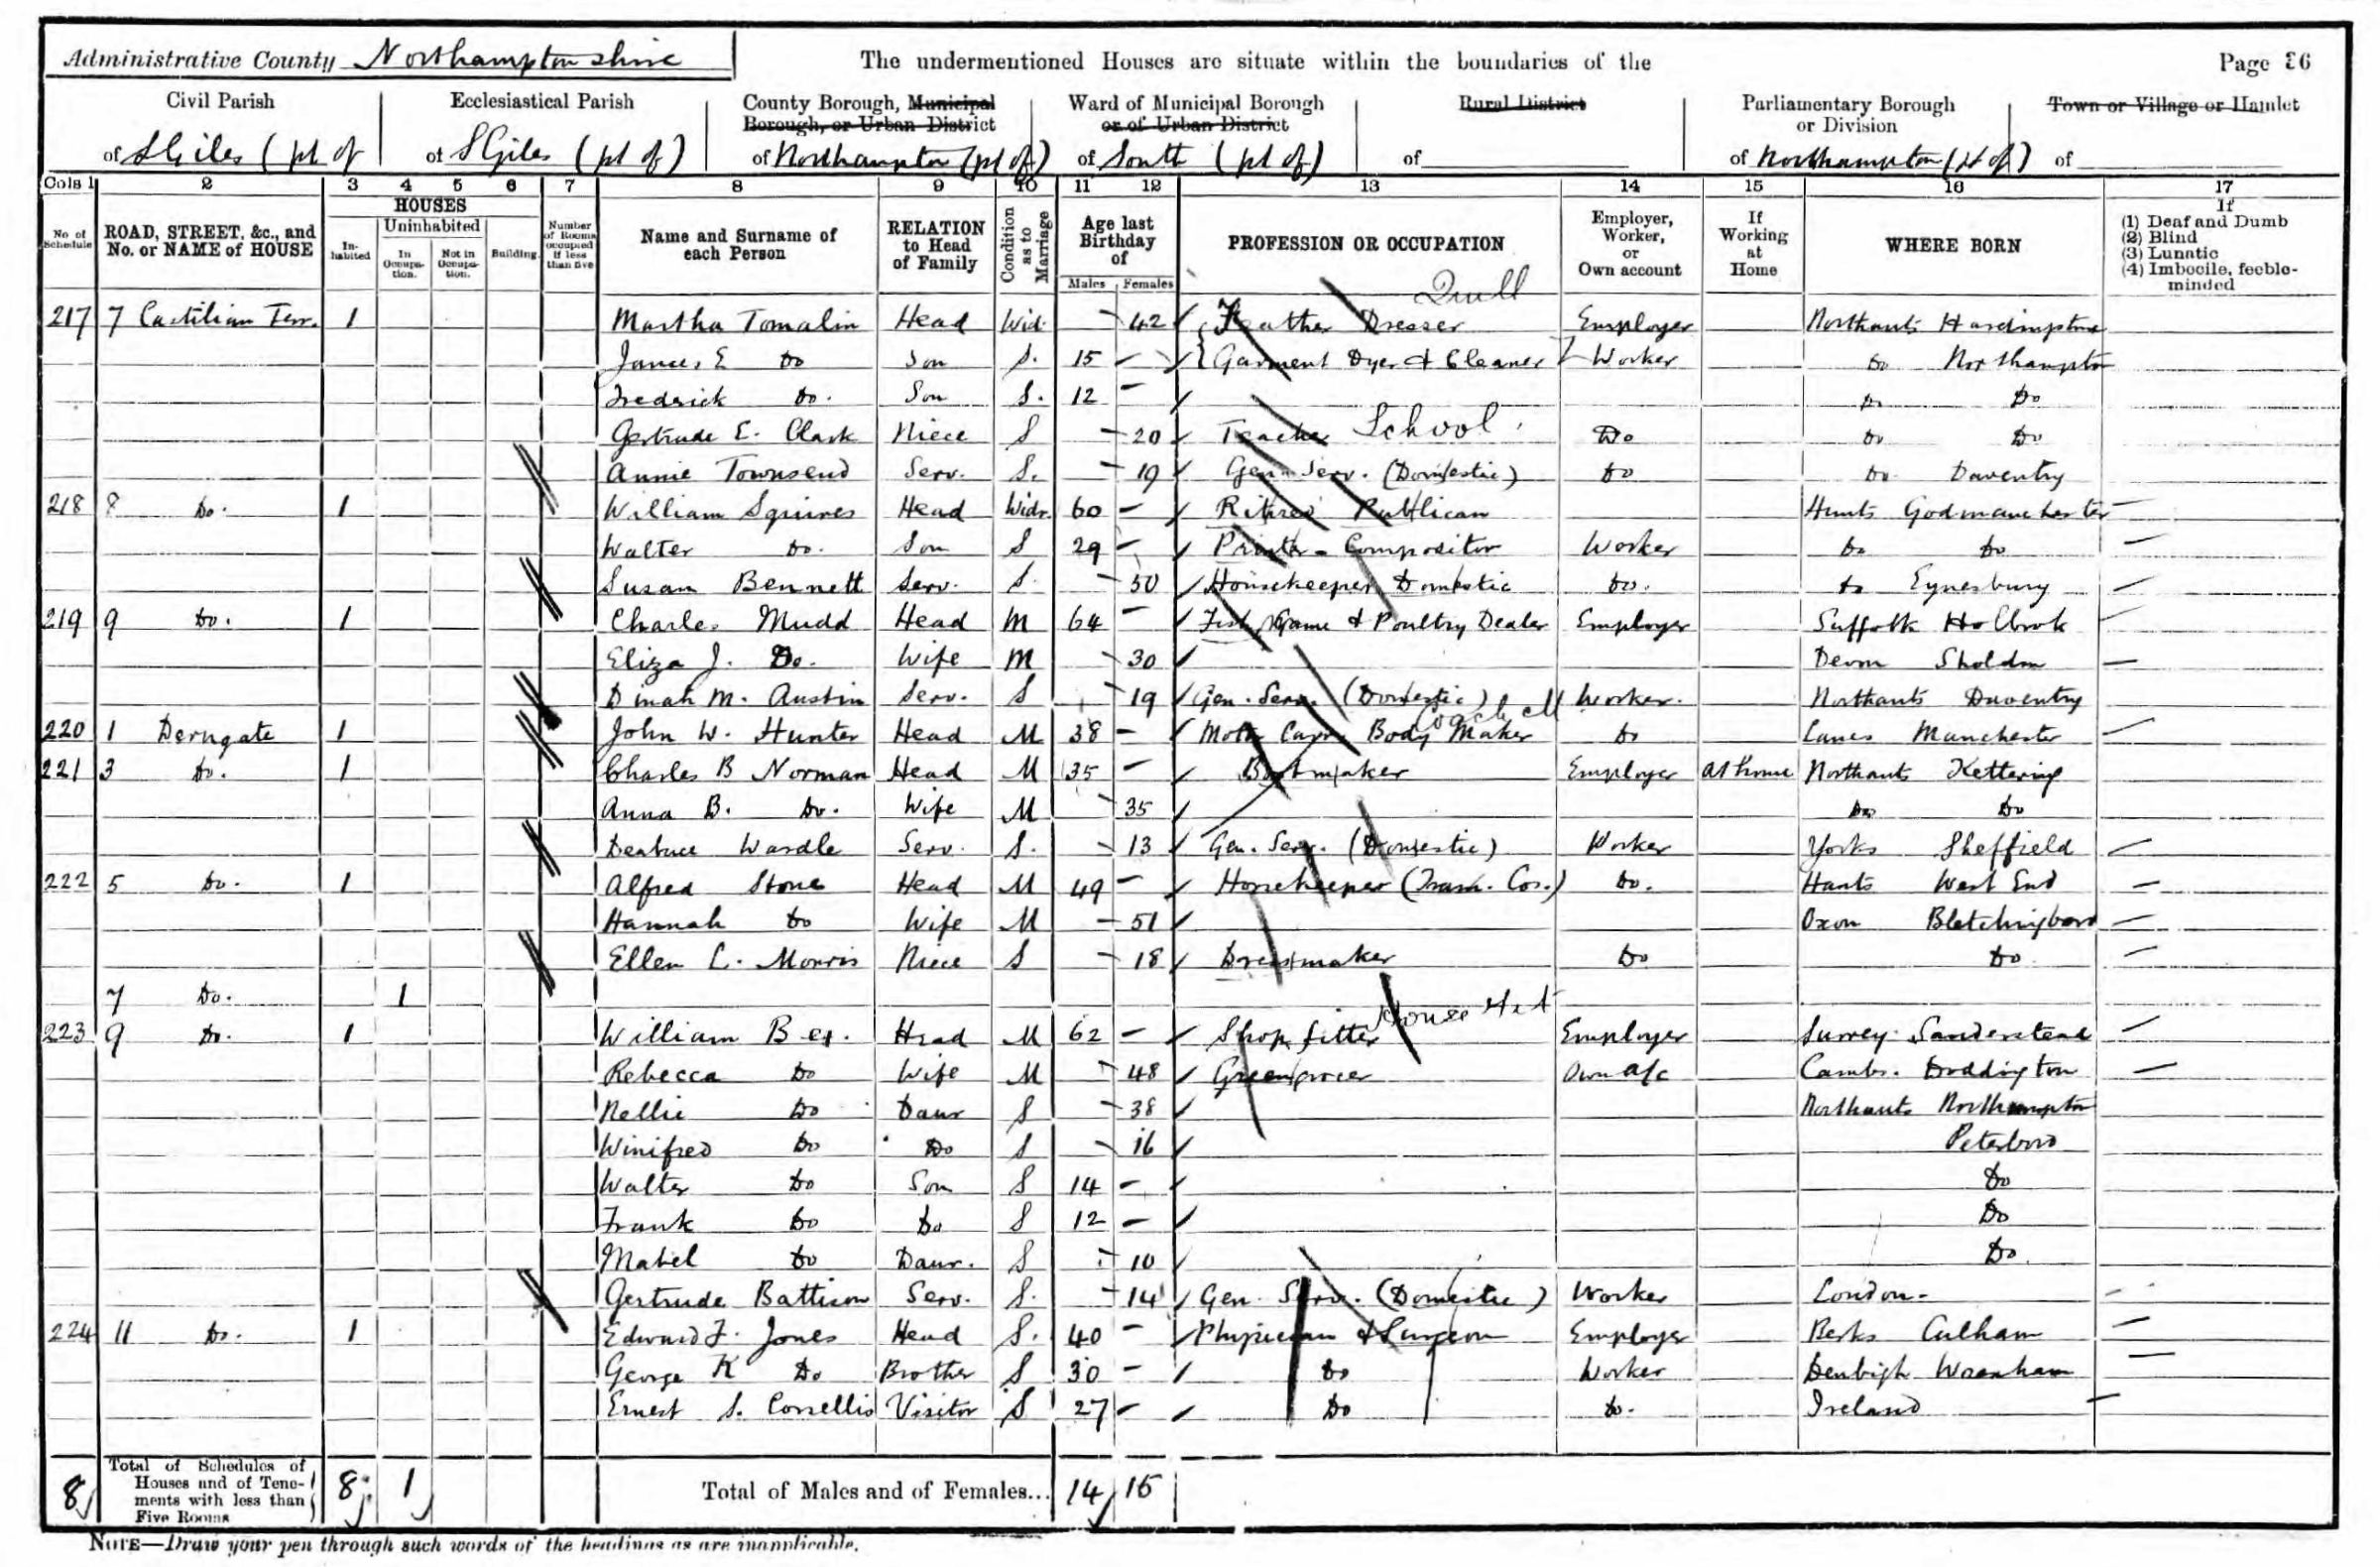 Administrative County Northamptonshire
The undermentioned Houses are situate within the boundaries of the
Page 26
Civil Parish
of St Giles (pt of
Ecclesiastical Parish
of St Giles (pt of)
County Borough, Municipal Borough, or Urban District
of Northampton (pt of)
Ward of Municipal Borough or of Urban District
of South (pt of)
Rural District
of
Parliamentary Borough or Division
of Northampton (pt of)
Town or Village or Hamlet
of
Cols 1 2 3 4 5 6 7 8 9 10 11 12 13 14 15 16 17
No of Schedule
ROAD, STREET, &c., and No. or NAME of HOUSE
HOUSES
Inhabited
Uninhabited
In Occupation.
Not in Occupation.
Building
Number of Rooms occupied if less than five
Name and Surname of each Person
RELATION to Head of Family
Condition as to Marriage
Age last Birthday of
Males Females
PROFESSION OR OCCUPATION
Employer, Worker, or Own account
If Working at Home
WHERE BORN
If
(1) Deaf and Dumb
(2) Blind
(3) Lunatic
(4) Imbecile, feeble-minded
Quill
217 7 Castilian Terr. 1 Martha Tomalin Head Wid. – 42 Feather Dresser Employer Northants Hardingstone
James E Do Son S. 15 – Garment Dyer & Cleaner Worker Do Northampton
Fredrick Do. Son S. 12 – Do Do
Gertrude E. Clark Niece S – 20 Teacher School Do Do Do
Annie Townsend Serv. S. – 19 Gen Serv. (Domestic) Do Do Daventry
218 8 Do. 1 William Squires Head Widr. 60 – Retired Publican Hunts Godmanchester –
Walter Do. Son S 29 – Printer – Compositor Worker Do Do –
Susan Bennett Serv. S. – 50 Housekeeper Domestic Do. Do Eynesbury –
219 9 Do. 1 Charles Mudd Head M 64 – Fish, Game & Poultry Dealer Employer Suffolk Holbrook –
Eliza J. Do. Wife M – 30 Devon Sholdon –
Dinah M. Austin Serv. S – 19 Gen. Serv. (Domestic) Worker. Northants Daventry
220 1 Derngate 1 John W. Hunter Head M 38 – Motor Car Body Maker Coach M Do Lancs Manchester –
221 3 Do. 1 Charles B Norman Head M 35 – Bootmaker Employer At home Northants Kettering
Anna B. Do. Wife M – 35 Do Do
Beatrice Wardle Serv. S. – 13 Gen. Serv. (Domestic) Worker Yorks Sheffield –
222 5 Do. 1 Alfred Stone Head M 49 – Horsekeeper (Tram. Co.) Do. Hants West End –
Hannah Do Wife M – 51 Oxon –
Ellen L. Morris Niece S – 18 Dressmaker Do Do –
7 Do. 1
223 9 Do. 1 William Head M 62 – Shop fitter House Employer Surrey Sanderstead –
Rebecca Do Wife M – 48 Greengrocer Own a/c Cambs. Doddington –
Nellie Do Daur S – 38 Northants Northampton
Winifred Do Do S – 16 Peterboro
Walter Do Son S 14 – Do
Frank Do Do S 12 – Do
Mabel Do Daur. S – 10 Do
Gertrude Battison Serv. S. – 14 Gen. Serv. (Domestic) Worker London –
224 11 Do. 1 Edward F. Jones Head S. 40 – Physician & Surgeon Employer Berks Culham –
George K Do Brother S 30 – Do Worker Denbigh Wrexham –
Ernest S. Corsellis Visitor S 27 – Do Do. Ireland –
8 Total of Schedules of Houses and of Tenements with less than Five Rooms 8 1 Total of Males and of Females... 14 15
NOTE—Draw your pen through such words of the headings as are inapplicable.